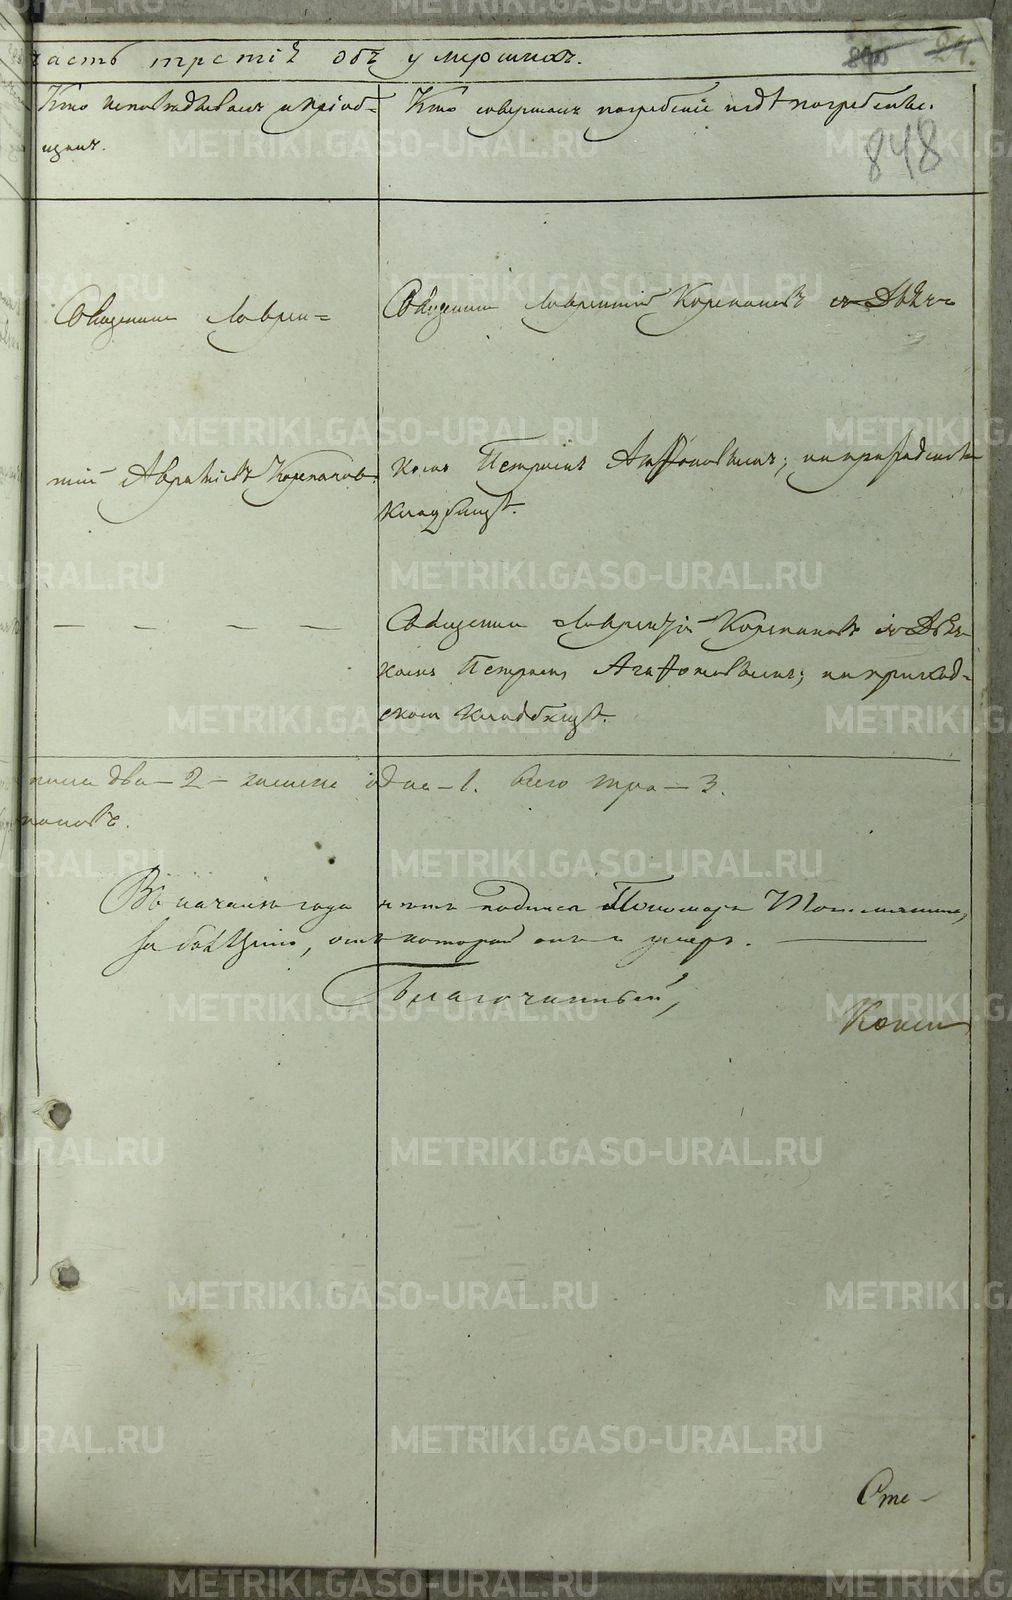 часть третiя объ умершихъ.
Кто исповѣдывалъ и прiоб-
щалъ.
Кто совершалъ погребенiе и гдѣ погребены.
848
Священникъ Лаврен=
тiй Авраамовъ Корепановъ
Священникъ Лаврентiй Корепановъ съ Дья-
кономъ Петромъ Агафоновымъ; на приходскомъ
кладбищѣ.
— — — —
Священникъ Лаврентiй Корепановъ съ Дья-
кономъ Петромъ Агафоновымъ; на приход=
скомъ кладбищѣ.
пола два - 2 - женска одна - 1. всего три - 3.
пановъ.
Въ началѣ года нѣтъ подписа Пономаря
за болѣзнiю, отъ которой онъ и умеръ. —
Благочинный,
Сте-
METRIKI.GASO-URAL.RU